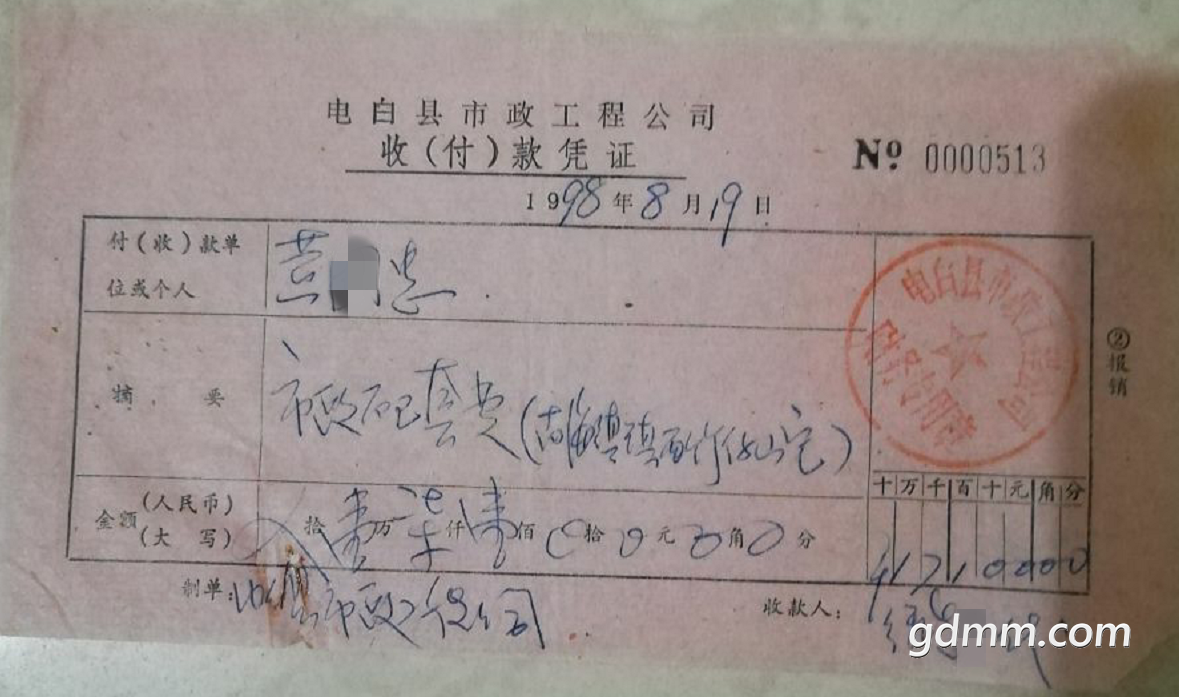 电白县市政工程公司
收(付)款凭证
No 0000513
1998年8月19日
付(收)款单
位或个人
黄 忠
电白县市政工程公司
财务专用章
②报销
摘要
市政配套费(
十万千百十元角分
金额(人民币)
(大写)
拾壹万柒仟壹佰0拾0元0角0分
1710000
制单:
市政工程公司
收款人:
gdmm.com